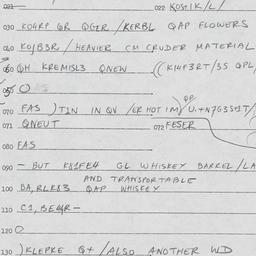 021
022 KOST1K/L/
030 KO4RP GR QGER /KERBL QAP FLOWERS
040 KO1BB3R / HEAVIER CM CRUDER MATERIAL
060 QH KREMISL3 QNEW ((KI4F3RT/3S QPL,
050 O
070 FAS )T1N IN QV /ER HOT IM)
071 QNEUT 072 FESER
080 FAS
090 - BUT K81FE4 GL WHISKEY BARREL/LA
AND TRANSPORTABLE
100 BA,RLK83 QAP WHISKEY
110 C1, BE44R-
120 O
130 )KLEPKE Q+ /ALSO ANOTHER WD